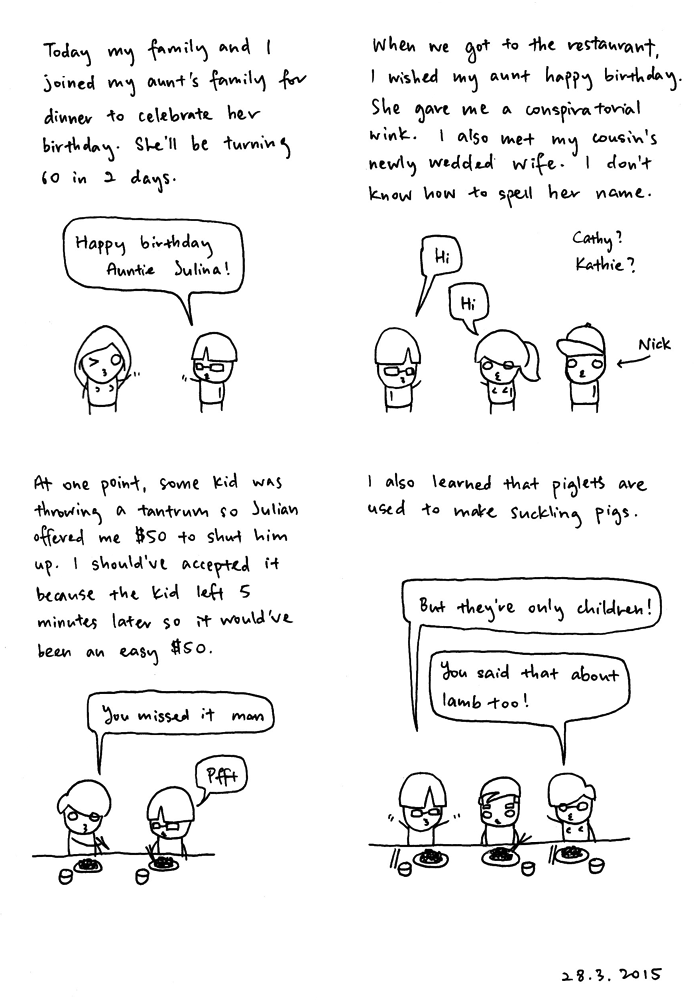 Today my family and I
joined my aunt's family for
dinner to celebrate her
birthday. She'll be turning
60 in 2 days.
Happy birthday
Auntie Julina!
When we got to the restaurant,
I wished my aunt happy birthday.
She gave me a conspiratorial
wink. I also met my cousin's
newly wedded wife. I don't
know how to spell her name.
Cathy?
Kathie?
Hi
Hi
Nick
At one point, some kid was
throwing a tantrum so Julian
offered me $50 to shut him
up. I should've accepted it
because the kid left 5
minutes later so it would've
been an easy $50.
You missed it man
Pfft
I also learned that piglets are
used to make suckling pigs.
But they're only children!
You said that about
lamb too!
28.3.2015